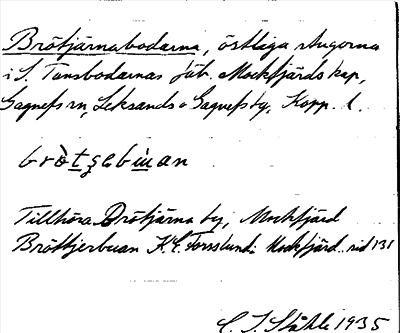 Brötjärnabodarna, östliga stugorna
i S. Tansbodarnas fäb. Mockfjärds kap,
Gagnefs sn, Leksands o Gagnefs tg, Kopp. l.
Tillhöra Brötjärna by, Mockfjärd
Bröttjerbuan K. E. Forsslund: Mockfjärd sid 131
C. I. Ståhle 1935